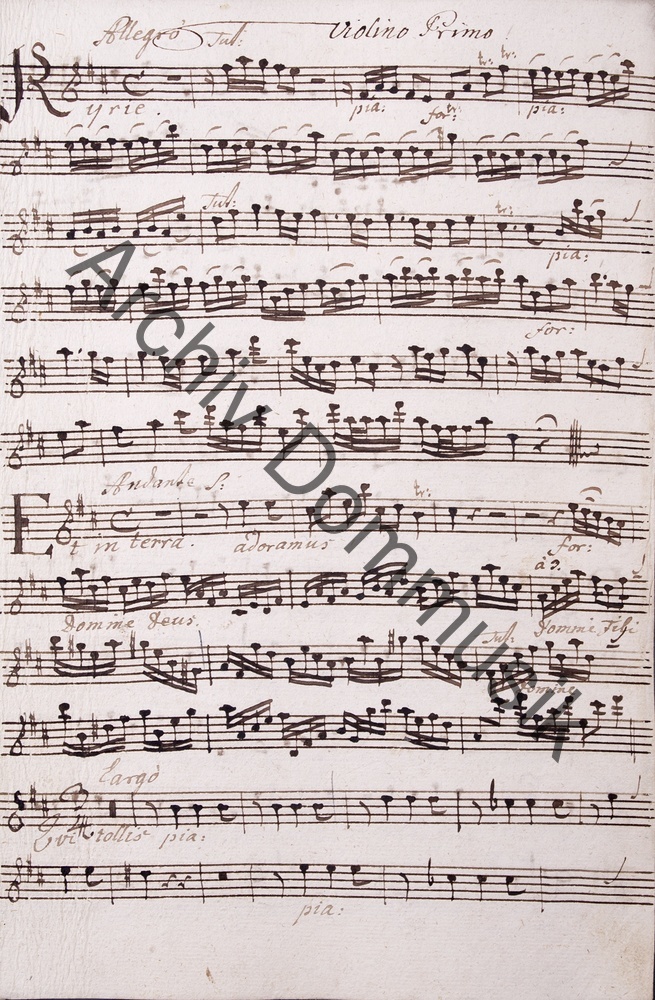 Allegro Tut: Violino Primo
Kyrie.
pia: for: tr: tr: tr: pia:
Tut: tr: pia:
for:
Andante S: tr:
Et in terra. adoramus for:
à 2.
Domine Deus. Tut: Domine Fili
Domine
Largo
Qui tollis pia:
pia:
Archiv Dommusik